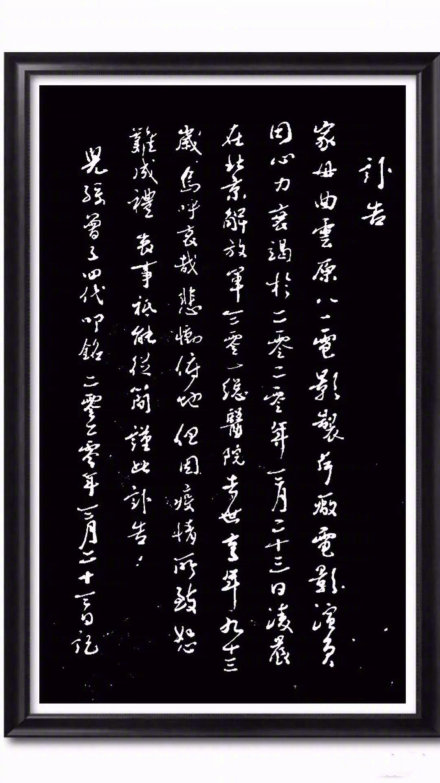 訃告
家母曲雲原八一電影製片廠電影演員
因心力衰竭於二零二零年三月二十三日凌晨
在北京解放軍三零一總醫院去世享年九十三
歲烏呼哀哉悲慟俯地但因疫情所致恕
難成禮喪事祇能從簡謹此訃告！
兒孫曾子四代叩銘二零二零年三月二十三日記